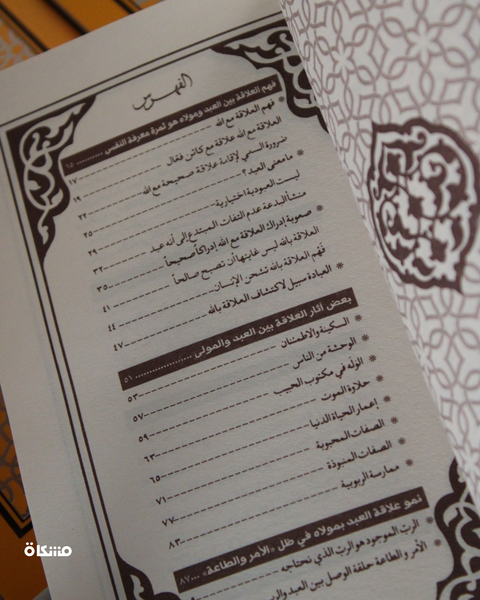 الفهرس
فهم العلاقة بين العبد ومولاه هو ثمرة معرفة النفس .......... ١٥
* فهم العلاقة مع الله ١٧
العلاقة مع الله علاقة مع كائن فعّال ١٩
ضرورة السعي لإقامة علاقة صحيحة مع الله ٢٢
* ما معنى العبد؟ ٢٥
ليست العبودية اختيارية
منشأ البدعة عدم التفات المبتدع إلى أنه عبد ٢٩
* صعوبة إدراك العلاقة مع الله إدراكاً صحيحاً ٣٢
العلاقة بالله ليس غايتها أن نصبح صالحاً ٣٥
فهم العلاقة بالله تشحن الإنسان ٤١
* العبادة سبيل لاكتشاف العلاقة بالله ٤٤
٤٧
بعض آثار العلاقة بين العبد والمولى .................... ٥١
* السكينة والاطمئنان ٥٣
* الوحشة من الناس ٥٧
* الوله في مكتوب الحبيب ٥٩
* حلاوة الموت ٦٣
* إعمار الحياة الدنيا ٦٥
* الصفات المحبوبة ٧١
* الصفات المنبوذة ٧٧
* ممارسة الربوبية ٨٣
نمو علاقة العبد بمولاه في ظل «الأمر والطاعة» ... ٨٧
* الرب الموجود هو الرب الذي نحتاجه
* الأمر والطاعة حلقة الوصل بين العبد والرب
مشكاة